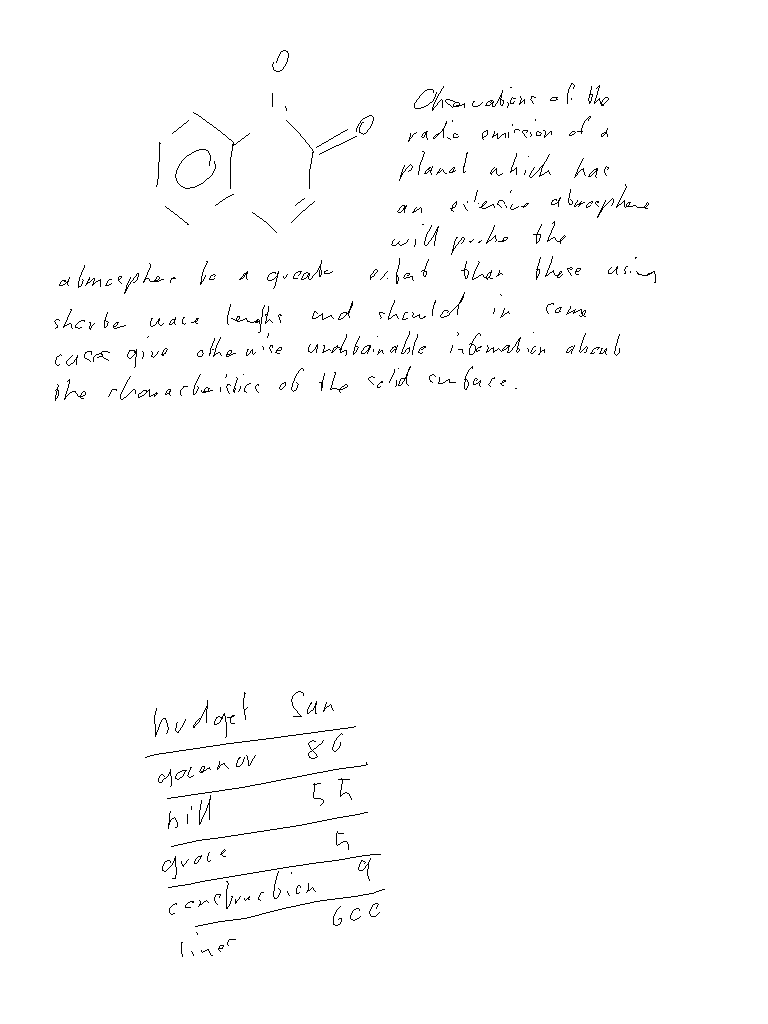 O
O
Observations of the
radio emission of a
planet which has
an extensive atmosphere
will probe the
atmosphere to a greater extent than those using
shorter wave lengths and should in some
cases give otherwise unobtainable information about
the characteristics of the solid surface.
budget Sun
governor 86
hill 55
grove 5
construction 9
liner 600